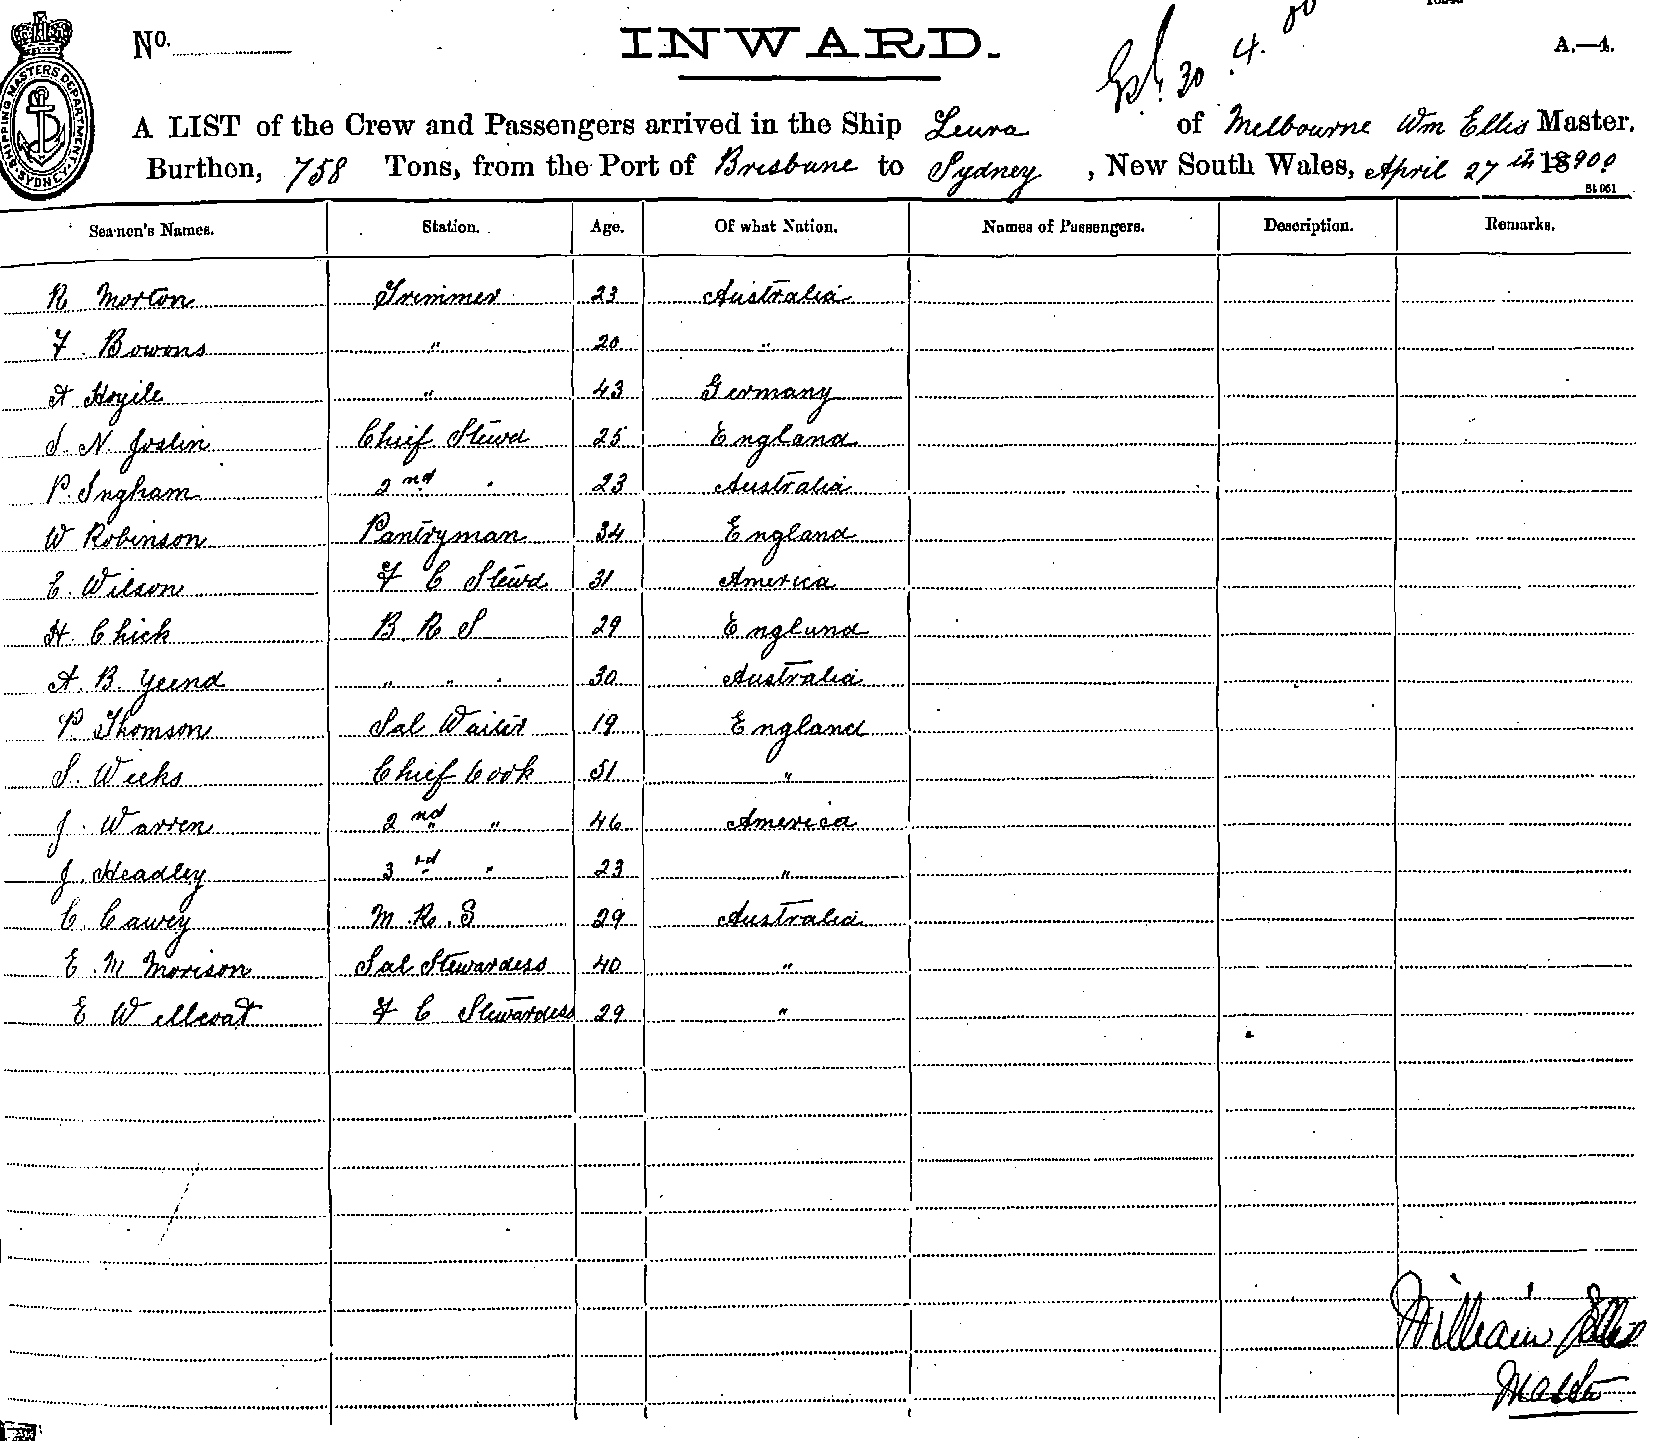 No.
INWARD.
30.4.00
A.—4.
SHIPPING MASTERS DEPARTMENT SYDNEY
A LIST of the Crew and Passengers arrived in the Ship Leura of Melbourne Wm Ellis Master.
Burthon, 758 Tons, from the Port of Brisbane to Sydney, New South Wales, April 27th 1900
Seamen's Names. Station. Age. Of what Nation. Names of Passengers. Description. Remarks.
R Morton Trimmer 23 Australia
F. Bowons " 20 "
A Hoyile " 43 Germany
S. N. Joslin Chief Stewd 25 England
P. Ingham 2nd " 23 Australia
W Robinson Pantryman 34 England
C. Wilson F C Stewd 31 America
H. Chick B R S 29 England
A. B. Yeend " " " 30 Australia
P. Thomson Sal Waiter 19 England
S. Wicks Chief Cook 51 "
J. Warren 2nd " 46 America
J. Headley 3rd " 23 "
C. Cawey M. R. S 29 Australia
E. M Morison Sal Stewardess 40 "
E Willcoat F C Stewardess 29 "
William Ellis
Master